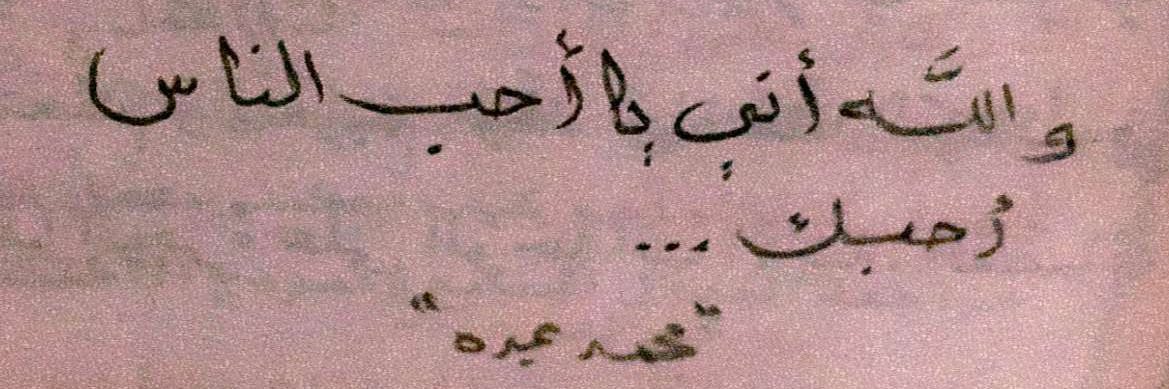 والله أني يا أحب الناس
أحبك ...
"محمد عبده"